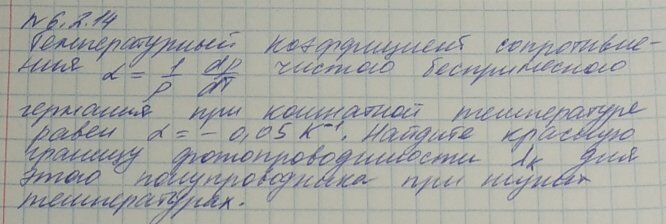 №6.2.14
Температурный коэффициент сопротивле-
ния α = 1/ρ dρ/dT чистого беспримесного
германия при комнатной температуре
равен α = -0,05 K⁻¹. Найдите красную
границу фотопроводимости λк для
этого полупроводника при низких
температурах.